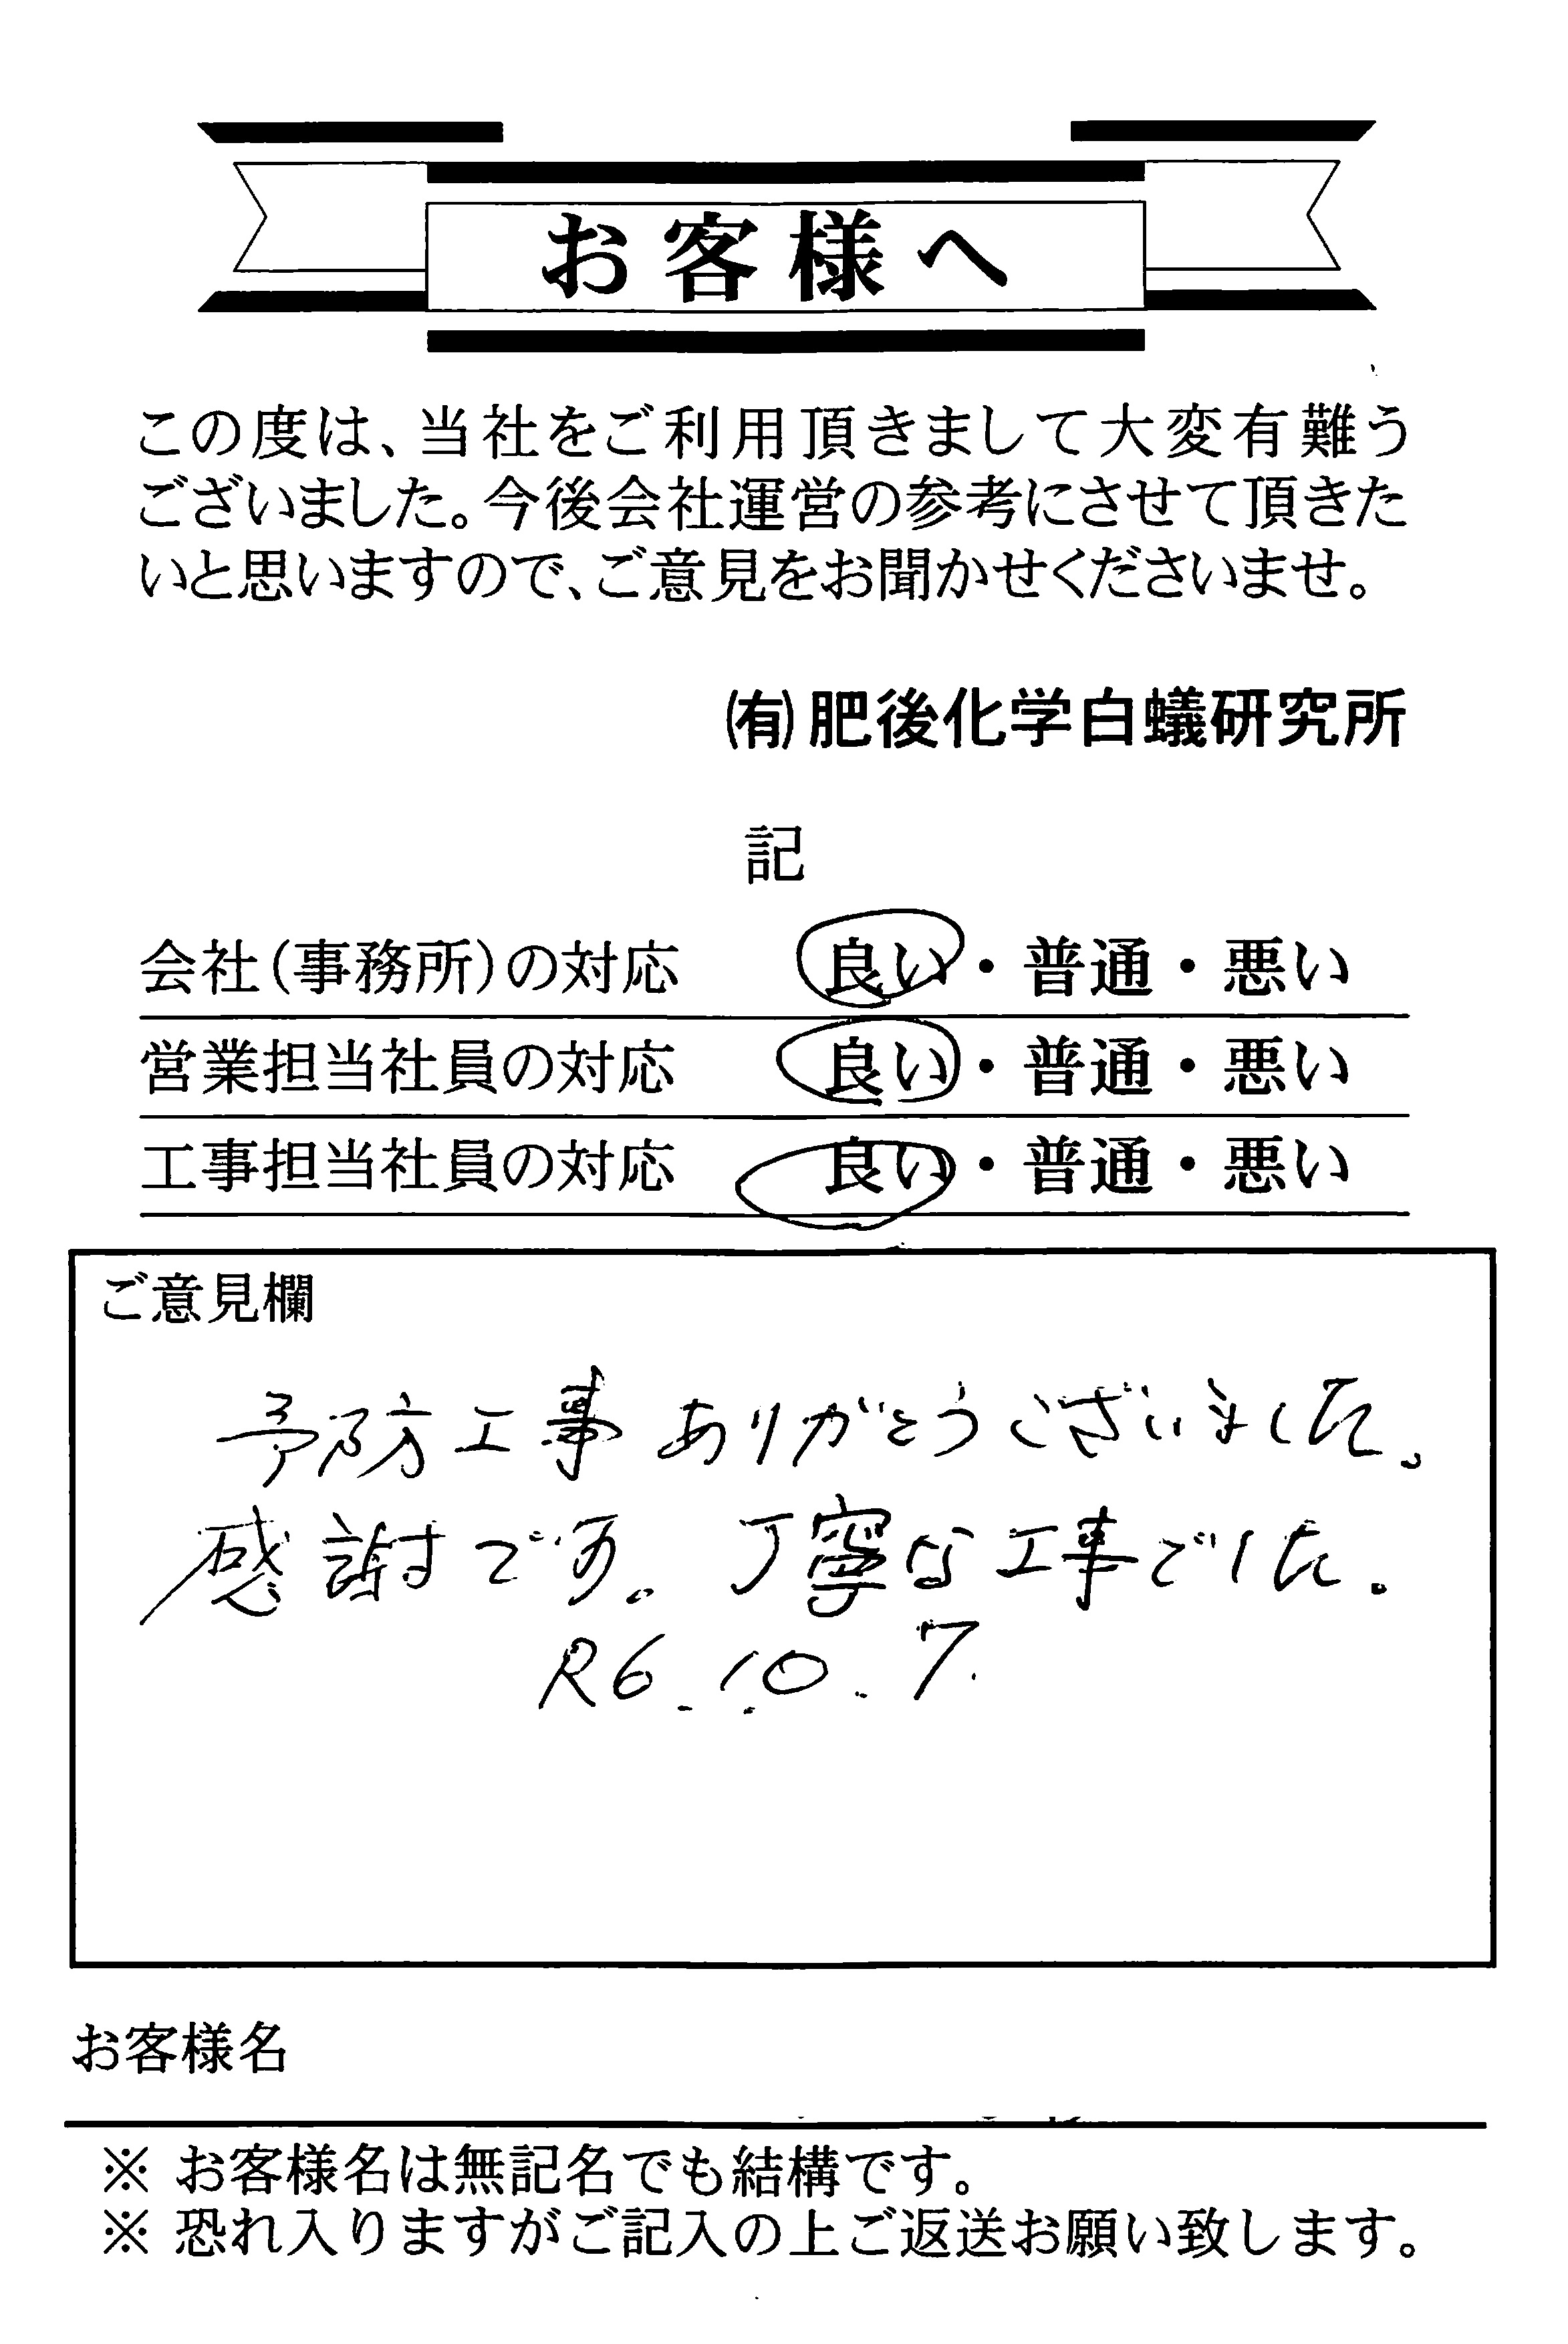 お客様へ
この度は、当社をご利用頂きまして大変有難う
ございました。今後会社運営の参考にさせて頂きた
いと思いますので、ご意見をお聞かせくださいませ。
㈲肥後化学白蟻研究所
記
会社(事務所)の対応 良い・普通・悪い
営業担当社員の対応 良い・普通・悪い
工事担当社員の対応 良い・普通・悪い
ご意見欄
予防工事ありがとうございました。
感謝です。丁寧な工事でした。
R6.10.7.
お客様名
※ お客様名は無記名でも結構です。
※ 恐れ入りますがご記入の上ご返送お願い致します。